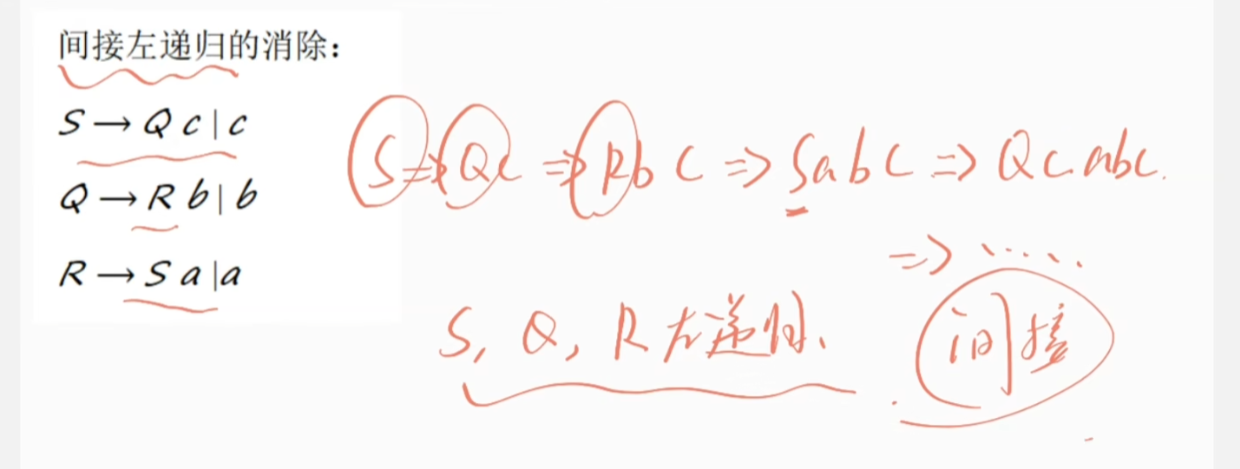 间接左递归的消除：
S → Q c | c
Q → R b | b
R → S a | a
S => Qc => Rbc => Sabc => Qcabc.
=> .....
S, Q, R 左递归、
间接